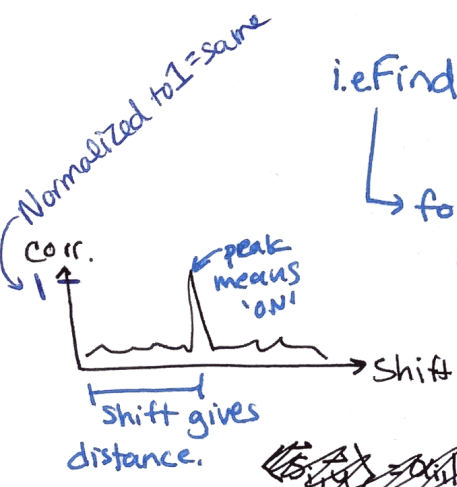 Normalized to 1 = same
i.e Find
fo
Corr.
1
peak
means
'ON'
Shift
Shift gives
distance.